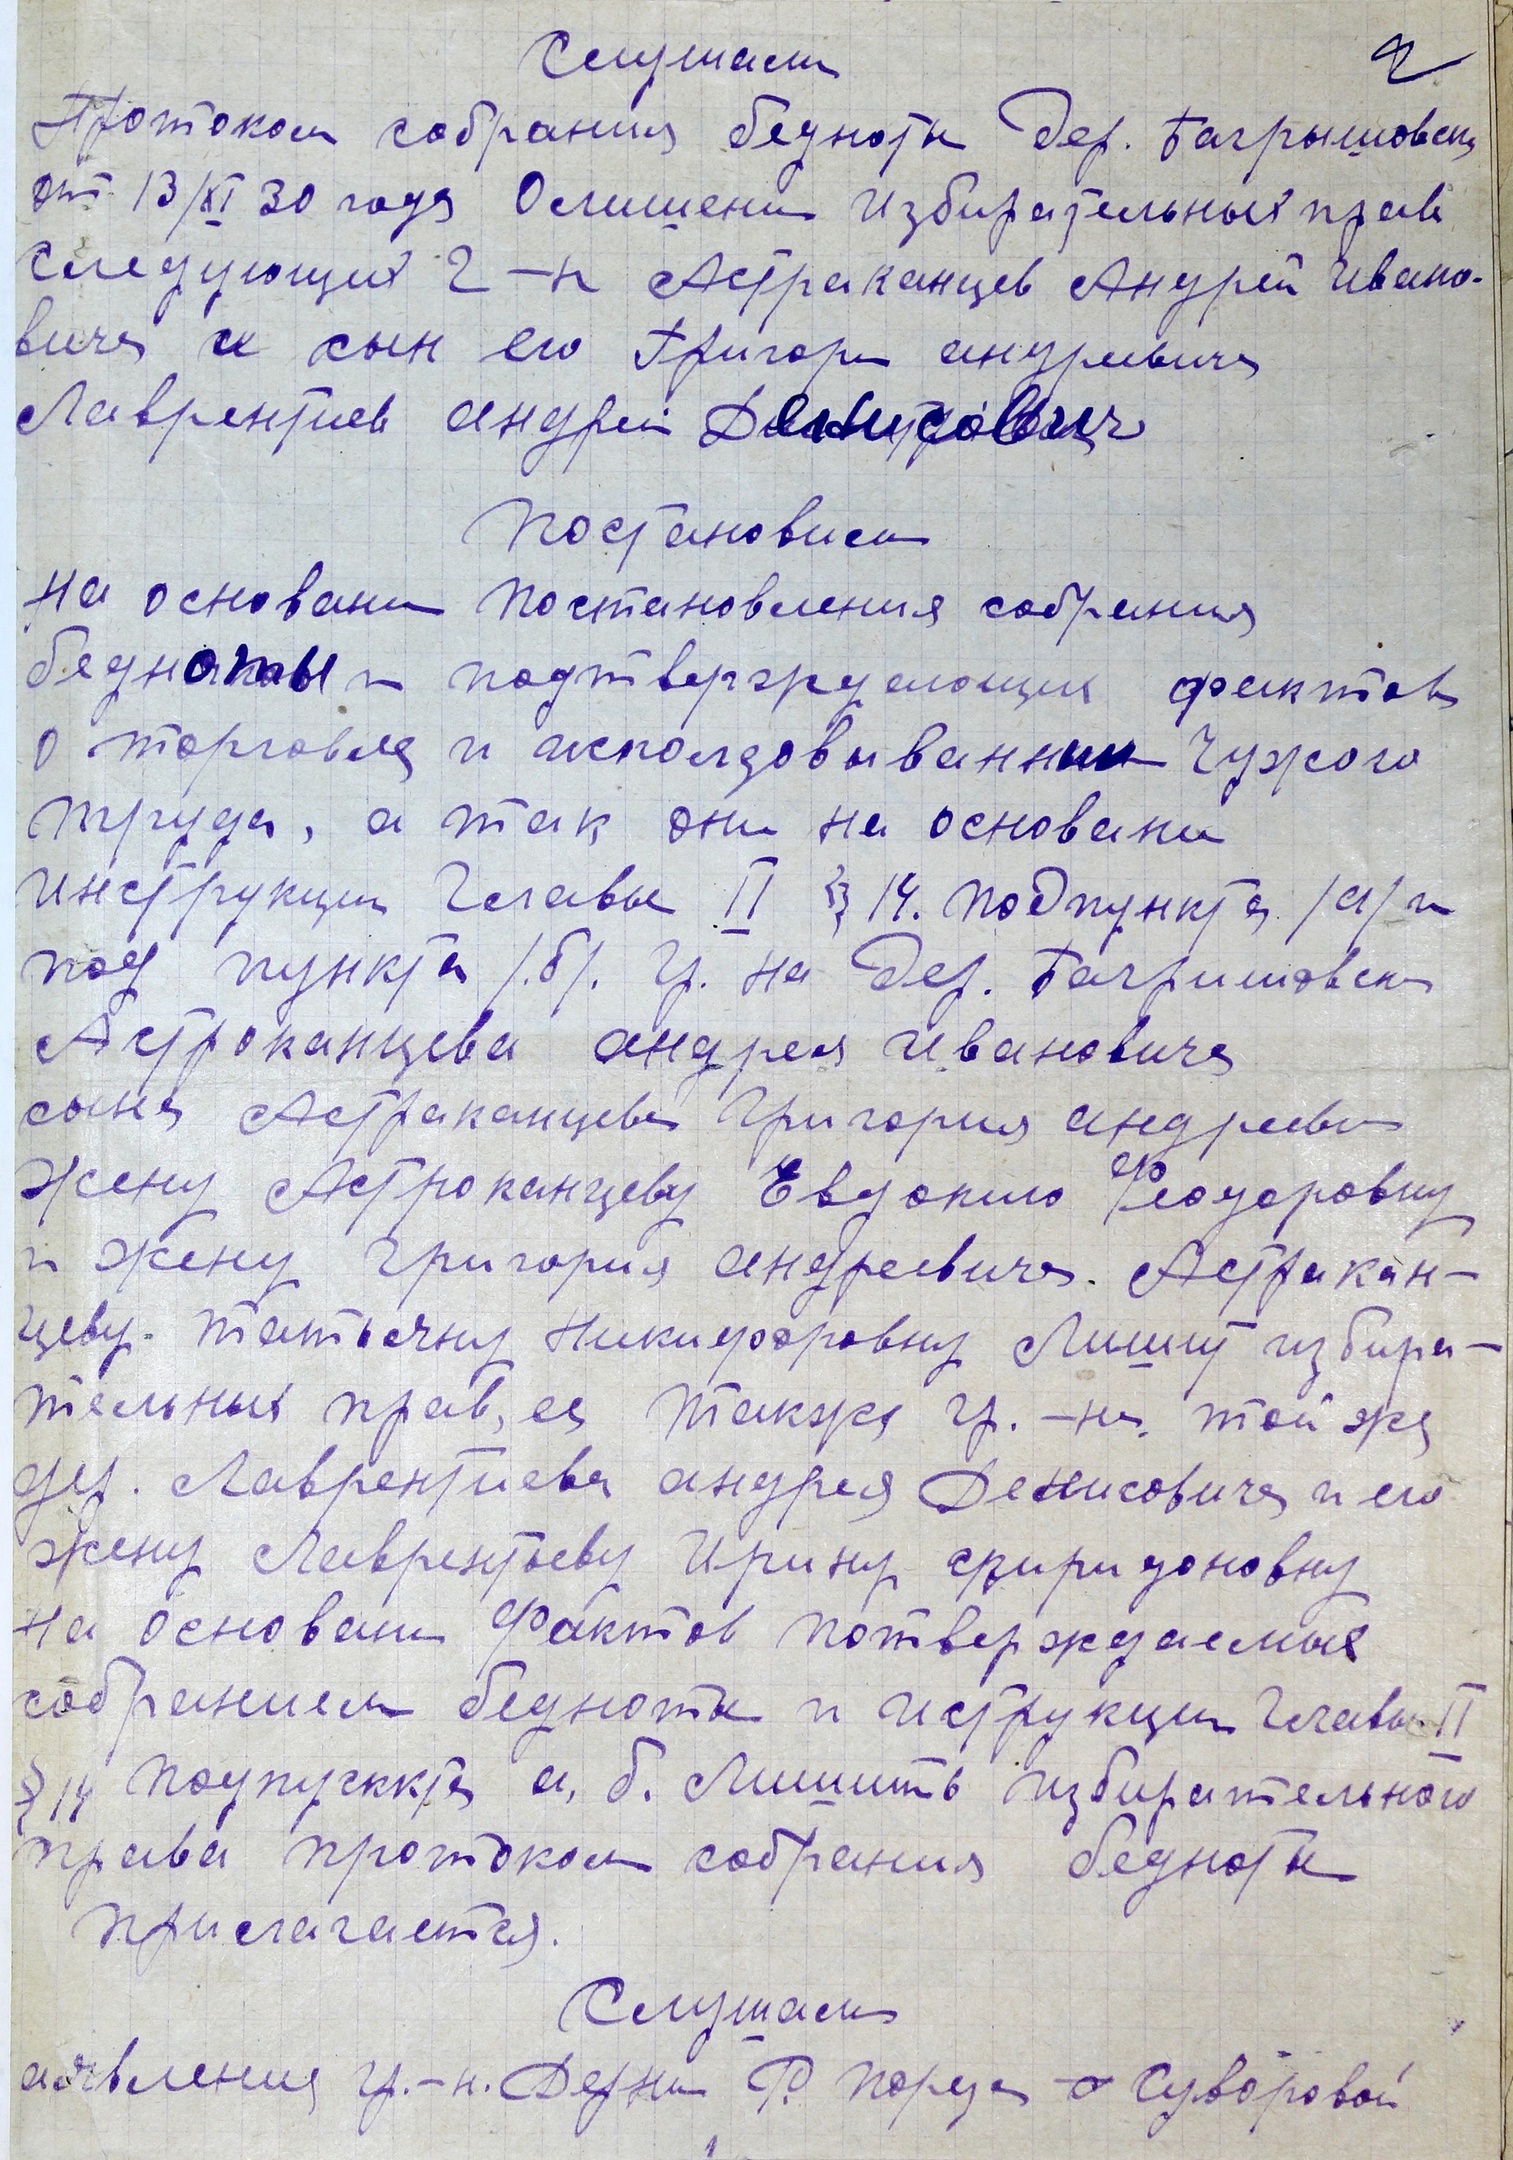 Слушали
Протокол собрания бедноты Дер. Багрышовск
от 13/XI 30 года О лишени избирательных прав
следующих г-н Астраканцев Андрей Ивано-
вича и сын его Григори андревича
Лаврентиев андрей Денисович
Постановили
На основани постановления собрания
бедноты и подтверждающих фактов
о торговле и исползовываннии Чужого
труда, а так они на основани
инструкции Главы II § 14. подпункта /а/ и
под пункта /.б/. гр. на Дер. Багришовск
Астроканцева андрея Ивановича
сына Астраканцева Григория андреевич
жену Астроканцеву Евдокию Феодоровну
и жену Григория андреевича. Астракан-
цеву. татьяну Никифоровну Лишит избира-
тельных прав, а также гр.-на. той же
дер. Лаврентиева андрея Денисовича и его
жену Лаврентьеву Ирину спиридоновну
На основани Фактов потверждаемых
собранием бедноты и иструкции Главы II
§ 14 подпусккта а, б. Лишить избирательного
права протокол собрания бедноты
прилагается.
Слушали
аявления гр.-н. Р. Суворовой